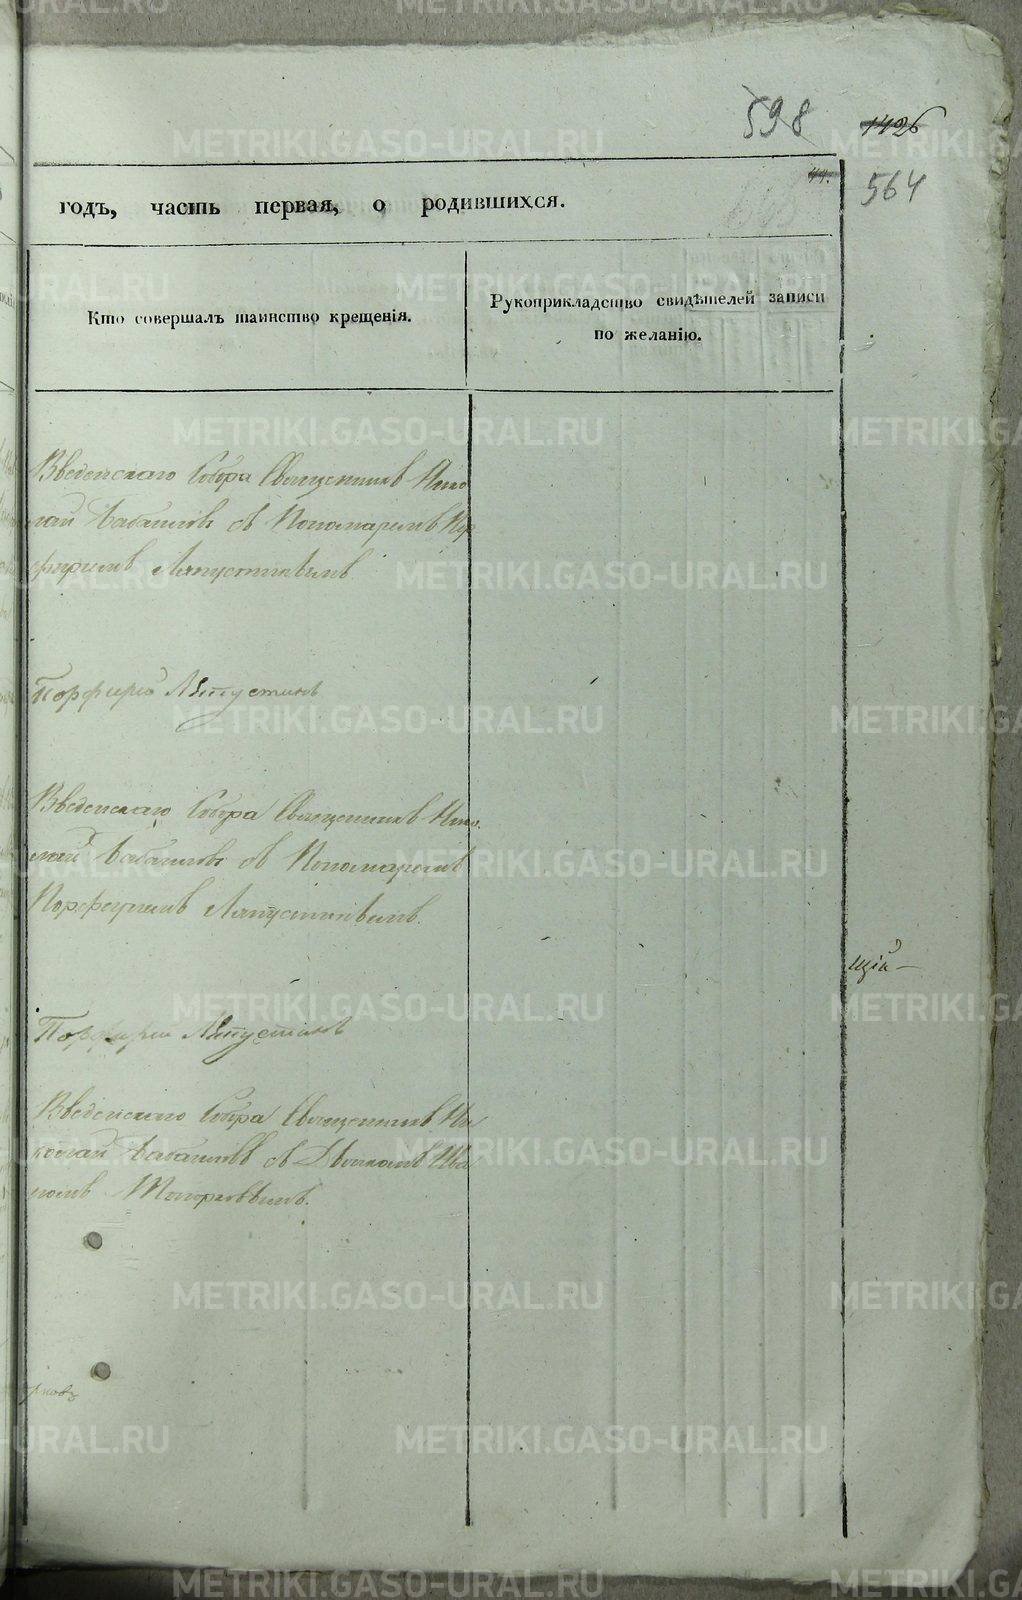 598
1426
44.
564
годъ, часть первая, о родившихся.
Кто совершалъ таинство крещенія.
Рукоприкладство свидѣтелей записи
по желанію.
Введенскаго Собора Священникъ Нико
лай съ Пономаремъ Пор
фиріемъ Ляпустинымъ
Порфирій Ляпустинъ
Введенскаго Собора Священникъ Нико.
лай съ Пономаремъ
Порфиріемъ Ляпустинымъ.
щій —
Порфирій Ляпустинъ
Введенскаго Собора Священникъ Ни
колай съ Дьякономъ Ива
номъ Топорковымъ.
METRIKI.GASO-URAL.RU